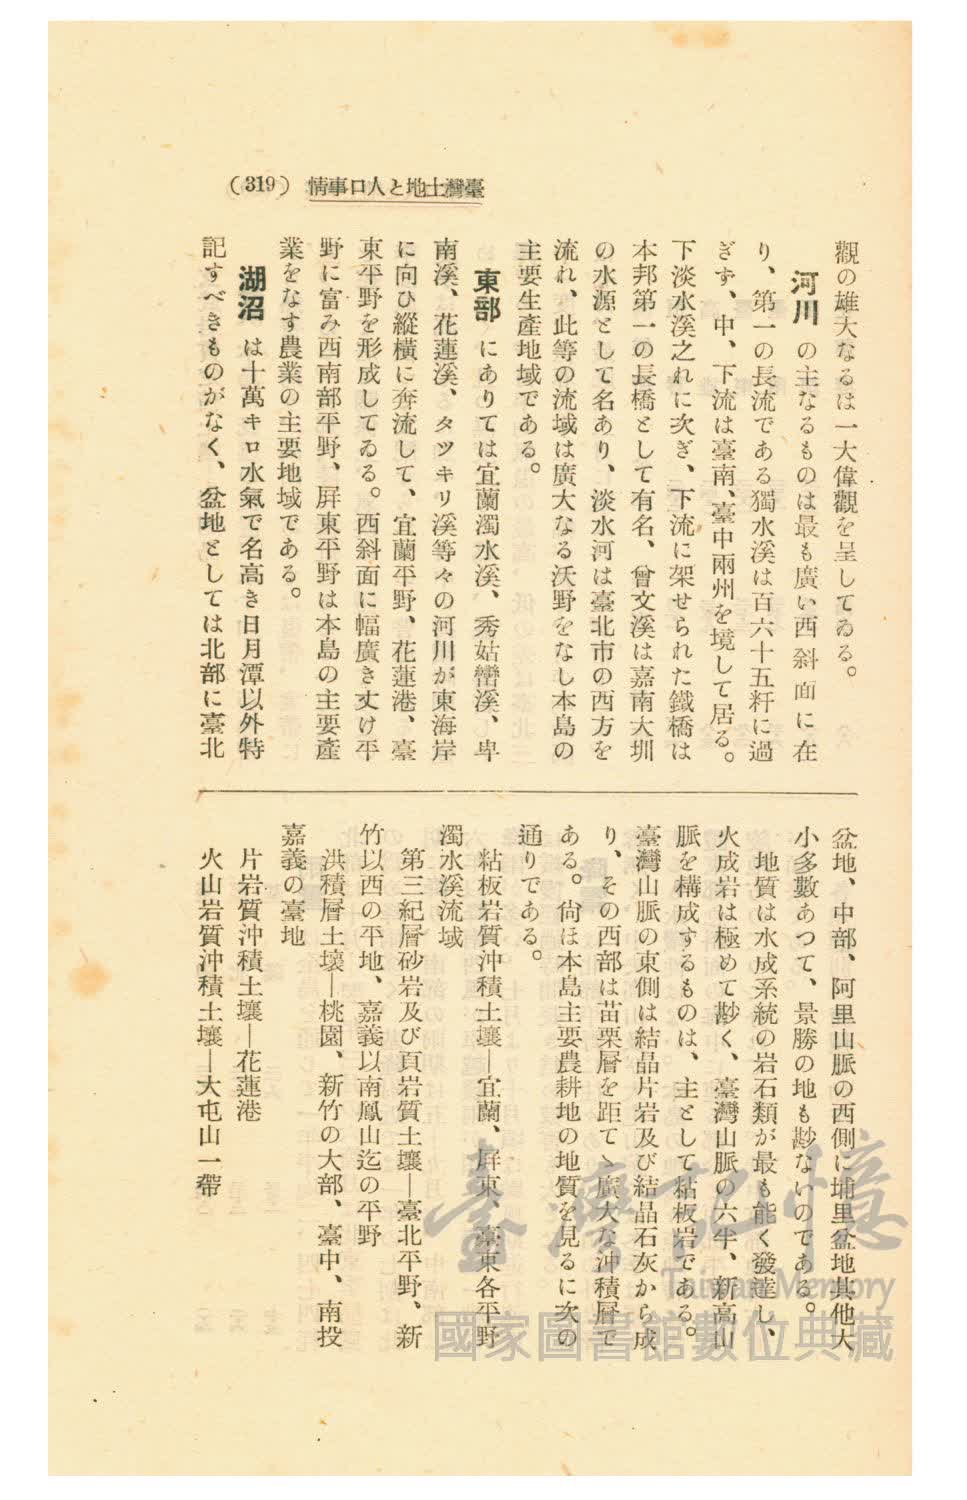 (319) 情事口人と地土灣臺
觀の雄大なるは一大偉觀を呈してゐる。
河川 の主なるものは最も廣い西斜面に在
り、第一の長流である獨水溪は百六十五粁に過
ぎず、中、下流は臺南、臺中兩州を境して居る。
下淡水溪之れに次ぎ、下流に架せられた鐵橋は
本邦第一の長橋として有名、曾文溪は嘉南大圳
の水源として名あり、淡水河は臺北市の西方を
流れ、此等の流域は廣大なる沃野をなし本島の
主要生產地域である。
東部 にありては宜蘭濁水溪、秀姑巒溪、卑
南溪、花蓮溪、タツキリ溪等々の河川が東海岸
に向ひ縱橫に奔流して、宜蘭平野、花蓮港、臺
東平野を形成してゐる。西斜面に幅廣き丈け平
野に富み西南部平野、屏東平野は本島の主要產
業をなす農業の主要地域である。
湖沼 は十萬キロ水氣で名高き日月潭以外特
記すべきものがなく、盆地としては北部に臺北
盆地、中部、阿里山脈の西側に埔里盆地其他大
小多數あつて、景勝の地も尠ないのである。
地質は水成系統の岩石類が最も能く發達し、
火成岩は極めて尠く、臺灣山脈の六半、新高山
脈を構成するものは、主として粘板岩である。
臺灣山脈の東側は結晶片岩及び結晶石灰から成
り、その西部は苗栗層を距てゝ廣大な沖積層で
ある。尙ほ本島主要農耕地の地質を見るに次の
通りである。
粘板岩質沖積土壤—宜蘭、屏東、臺東各平野
濁水溪流域
第三紀層砂岩及び頁岩質土壤—臺北平野、新
竹以西の平地、嘉義以南鳳山迄の平野
洪積層土壤—桃園、新竹の大部、臺中、南投
嘉義の臺地
片岩質沖積土壤—花蓮港
火山岩質沖積土壤—大屯山一帶
臺灣記憶
Taiwan Memory
國家圖書館數位典藏